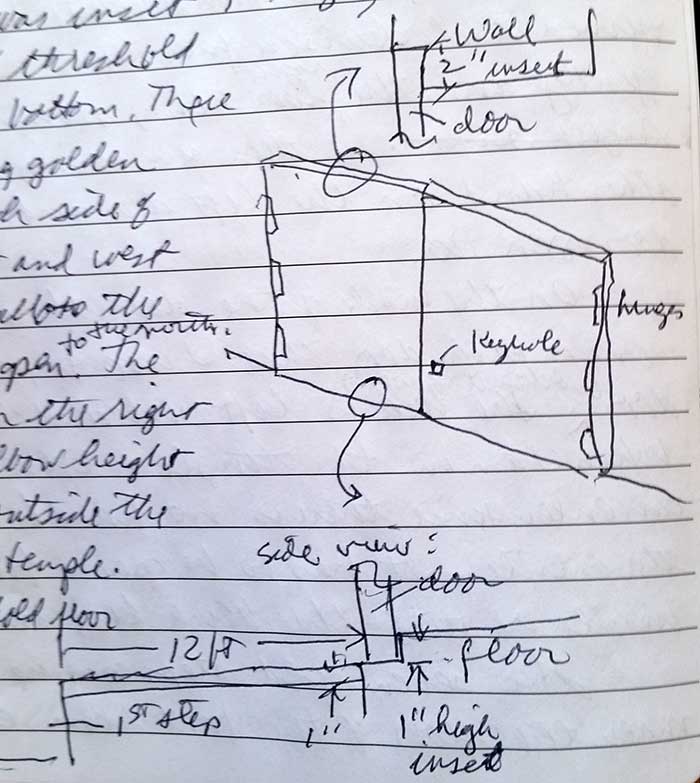 was inset
threshold
bottom. There
golden
side of
and west
to the
to the north.
open. The
the right
elbow height
outside the
temple.
floor
Wall
2" inset
door
hinges
Keyhole
side view:
door
12 ft
floor
1st step
1"
1" high
inset